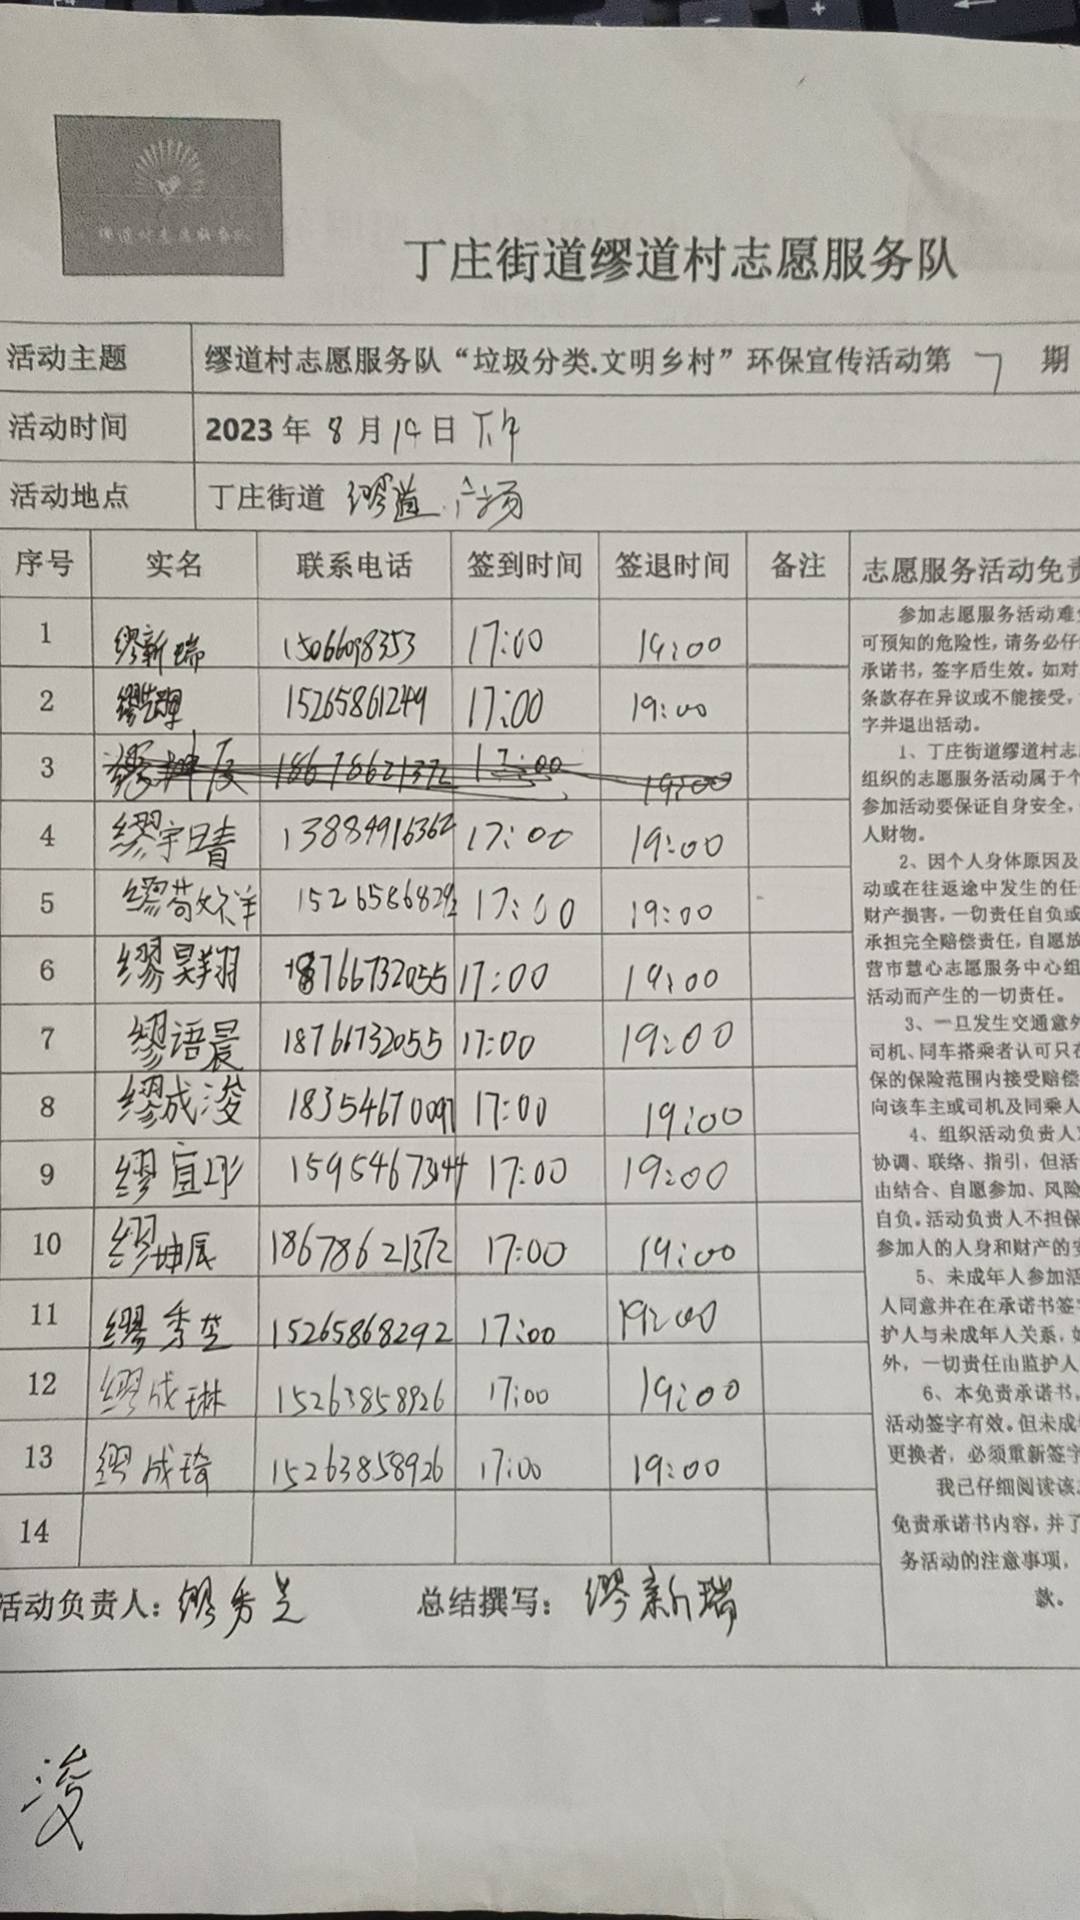 缪道村志愿服务队
丁庄街道缪道村志愿服务队
活动主题 缪道村志愿服务队“垃圾分类.文明乡村”环保宣传活动第 7 期
活动时间 2023 年 8 月 19 日 下午
活动地点 丁庄街道 缪道 广场
序号 实名 联系电话 签到时间 签退时间 备注 志愿服务活动免责
1 缪新瑞 15066098353 17:00 19:00
2 15265861249 17:00 19:00
3 缪坤辰 18678621372 17:00 19:00
4 缪宇晴 13884916362 17:00 19:00
5 缪苟欣祥 15265868292 17:00 19:00
6 缪昊翔 18766732055 17:00 19:00
7 缪语晨 18766732055 17:00 19:00
8 缪成浚 18354670097 17:00 19:00
9 缪宜彤 17:00 19:00
10 缪坤辰 18678621372 17:00 19:00
11 缪秀芝 15265868292 17:00 19:00
12 缪成琳 15263858926 17:00 19:00
13 缪成琦 15263858926 17:00 19:00
14
参加志愿服务活动难免
可预知的危险性，请务必仔
承诺书，签字后生效。如对
条款存在异议或不能接受，
字并退出活动。
1、丁庄街道缪道村志
组织的志愿服务活动属于个
参加活动要保证自身安全，
人财物。
2、因个人身体原因及
动或在往返途中发生的任
财产损害，一切责任自负或
承担完全赔偿责任，自愿放
营市慧心志愿服务中心组
活动而产生的一切责任。
3、一旦发生交通意外
司机、同车搭乘者认可只在
保的保险范围内接受赔偿
向该车主或司机及同乘人
4、组织活动负责人
协调、联络、指引，但活
由结合、自愿参加、风险
自负。活动负责人不担保
参加人的人身和财产的安
5、未成年人参加活
人同意并在在承诺书签字
护人与未成年人关系，如
外，一切责任由监护人
6、本免责承诺书，
活动签字有效。但未成
更换者，必须重新签字
我已仔细阅读该
免责承诺书内容，并了
务活动的注意事项，
款。
活动负责人：缪秀芝 总结撰写：缪新瑞
浚